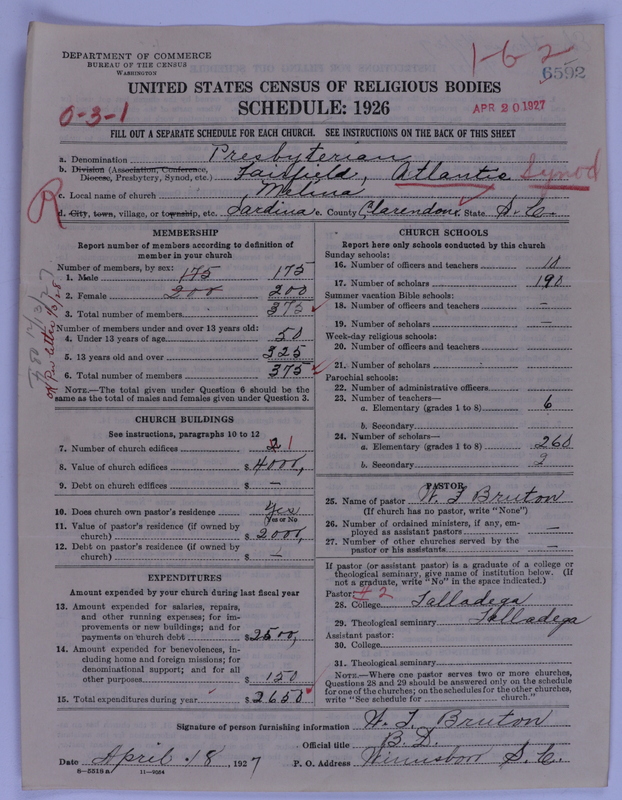 DEPARTMENT OF COMMERCE
BUREAU OF THE CENSUS
WASHINGTON
1-6-2
6592
UNITED STATES CENSUS OF RELIGIOUS BODIES
SCHEDULE: 1926
APR 20 1927
0-3-1
FILL OUT A SEPARATE SCHEDULE FOR EACH CHURCH. SEE INSTRUCTIONS ON THE BACK OF THIS SHEET
a. Denomination Presbyterian
b. Division (Association, Conference, Diocese, Presbytery, Synod, etc.) Fairfield, Atlantic Synod
c. Local name of church Melina
d. City, town, village, or township, etc. Sardinia e. County Clarendon f. State S. C.
R
MEMBERSHIP
Report number of members according to definition of
member in your church
Number of members, by sex:
1. Male 175 175
2. Female 200 200
3. Total number of members 375
Number of members under and over 13 years old:
4. Under 13 years of age 50
5. 13 years old and over 325
6. Total number of members 375
NOTE.—The total given under Question 6 should be the
same as the total of males and females given under Question 3.
CHURCH BUILDINGS
See instructions, paragraphs 10 to 12
7. Number of church edifices 1
8. Value of church edifices $4000,
9. Debt on church edifices $ —
10. Does church own pastor's residence? Yes
Yes or No
11. Value of pastor's residence (if owned by
church) $2000,
12. Debt on pastor's residence (if owned by
church) $ —
EXPENDITURES
Amount expended by your church during last fiscal year
13. Amount expended for salaries, repairs,
and other running expenses; for im-
provements or new buildings; and for
payments on church debt $2500,
14. Amount expended for benevolences, in-
cluding home and foreign missions; for
denominational support; and for all
other purposes $ 150
15. Total expenditures during year $2650
CHURCH SCHOOLS
Report here only schools conducted by this church
Sunday schools:
16. Number of officers and teachers 10
17. Number of scholars 190
Summer vacation Bible schools:
18. Number of officers and teachers —
19. Number of scholars —
Week-day religious schools:
20. Number of officers and teachers
21. Number of scholars
Parochial schools:
22. Number of administrative officers
23. Number of teachers—
a. Elementary (grades 1 to 8) 6
b. Secondary
24. Number of scholars—
a. Elementary (grades 1 to 8) 260
b. Secondary 2
PASTOR
25. Name of pastor W. J. Bruton
(If church has no pastor, write "None")
26. Number of ordained ministers, if any, em-
ployed as assistant pastors —
27. Number of other churches served by the
pastor or his assistants —
If pastor (or assistant pastor) is a graduate of a college or
theological seminary, give name of institution below. (If
not a graduate, write "No" in the space indicated.)
Pastor: #2
28. College Talladega
29. Theological seminary Talladega
Assistant pastor:
30. College
31. Theological seminary
NOTE.—Where one pastor serves two or more churches,
Questions 28 and 29 should be answered only on the schedule
for one of the churches; on the schedules for the other churches,
write "See schedule for church."
Signature of person furnishing information W. J. Bruton
Official title B. D.
Date April 18, 1927 P. O. Address Winnsboro S. C.
8—5518a 11—9054